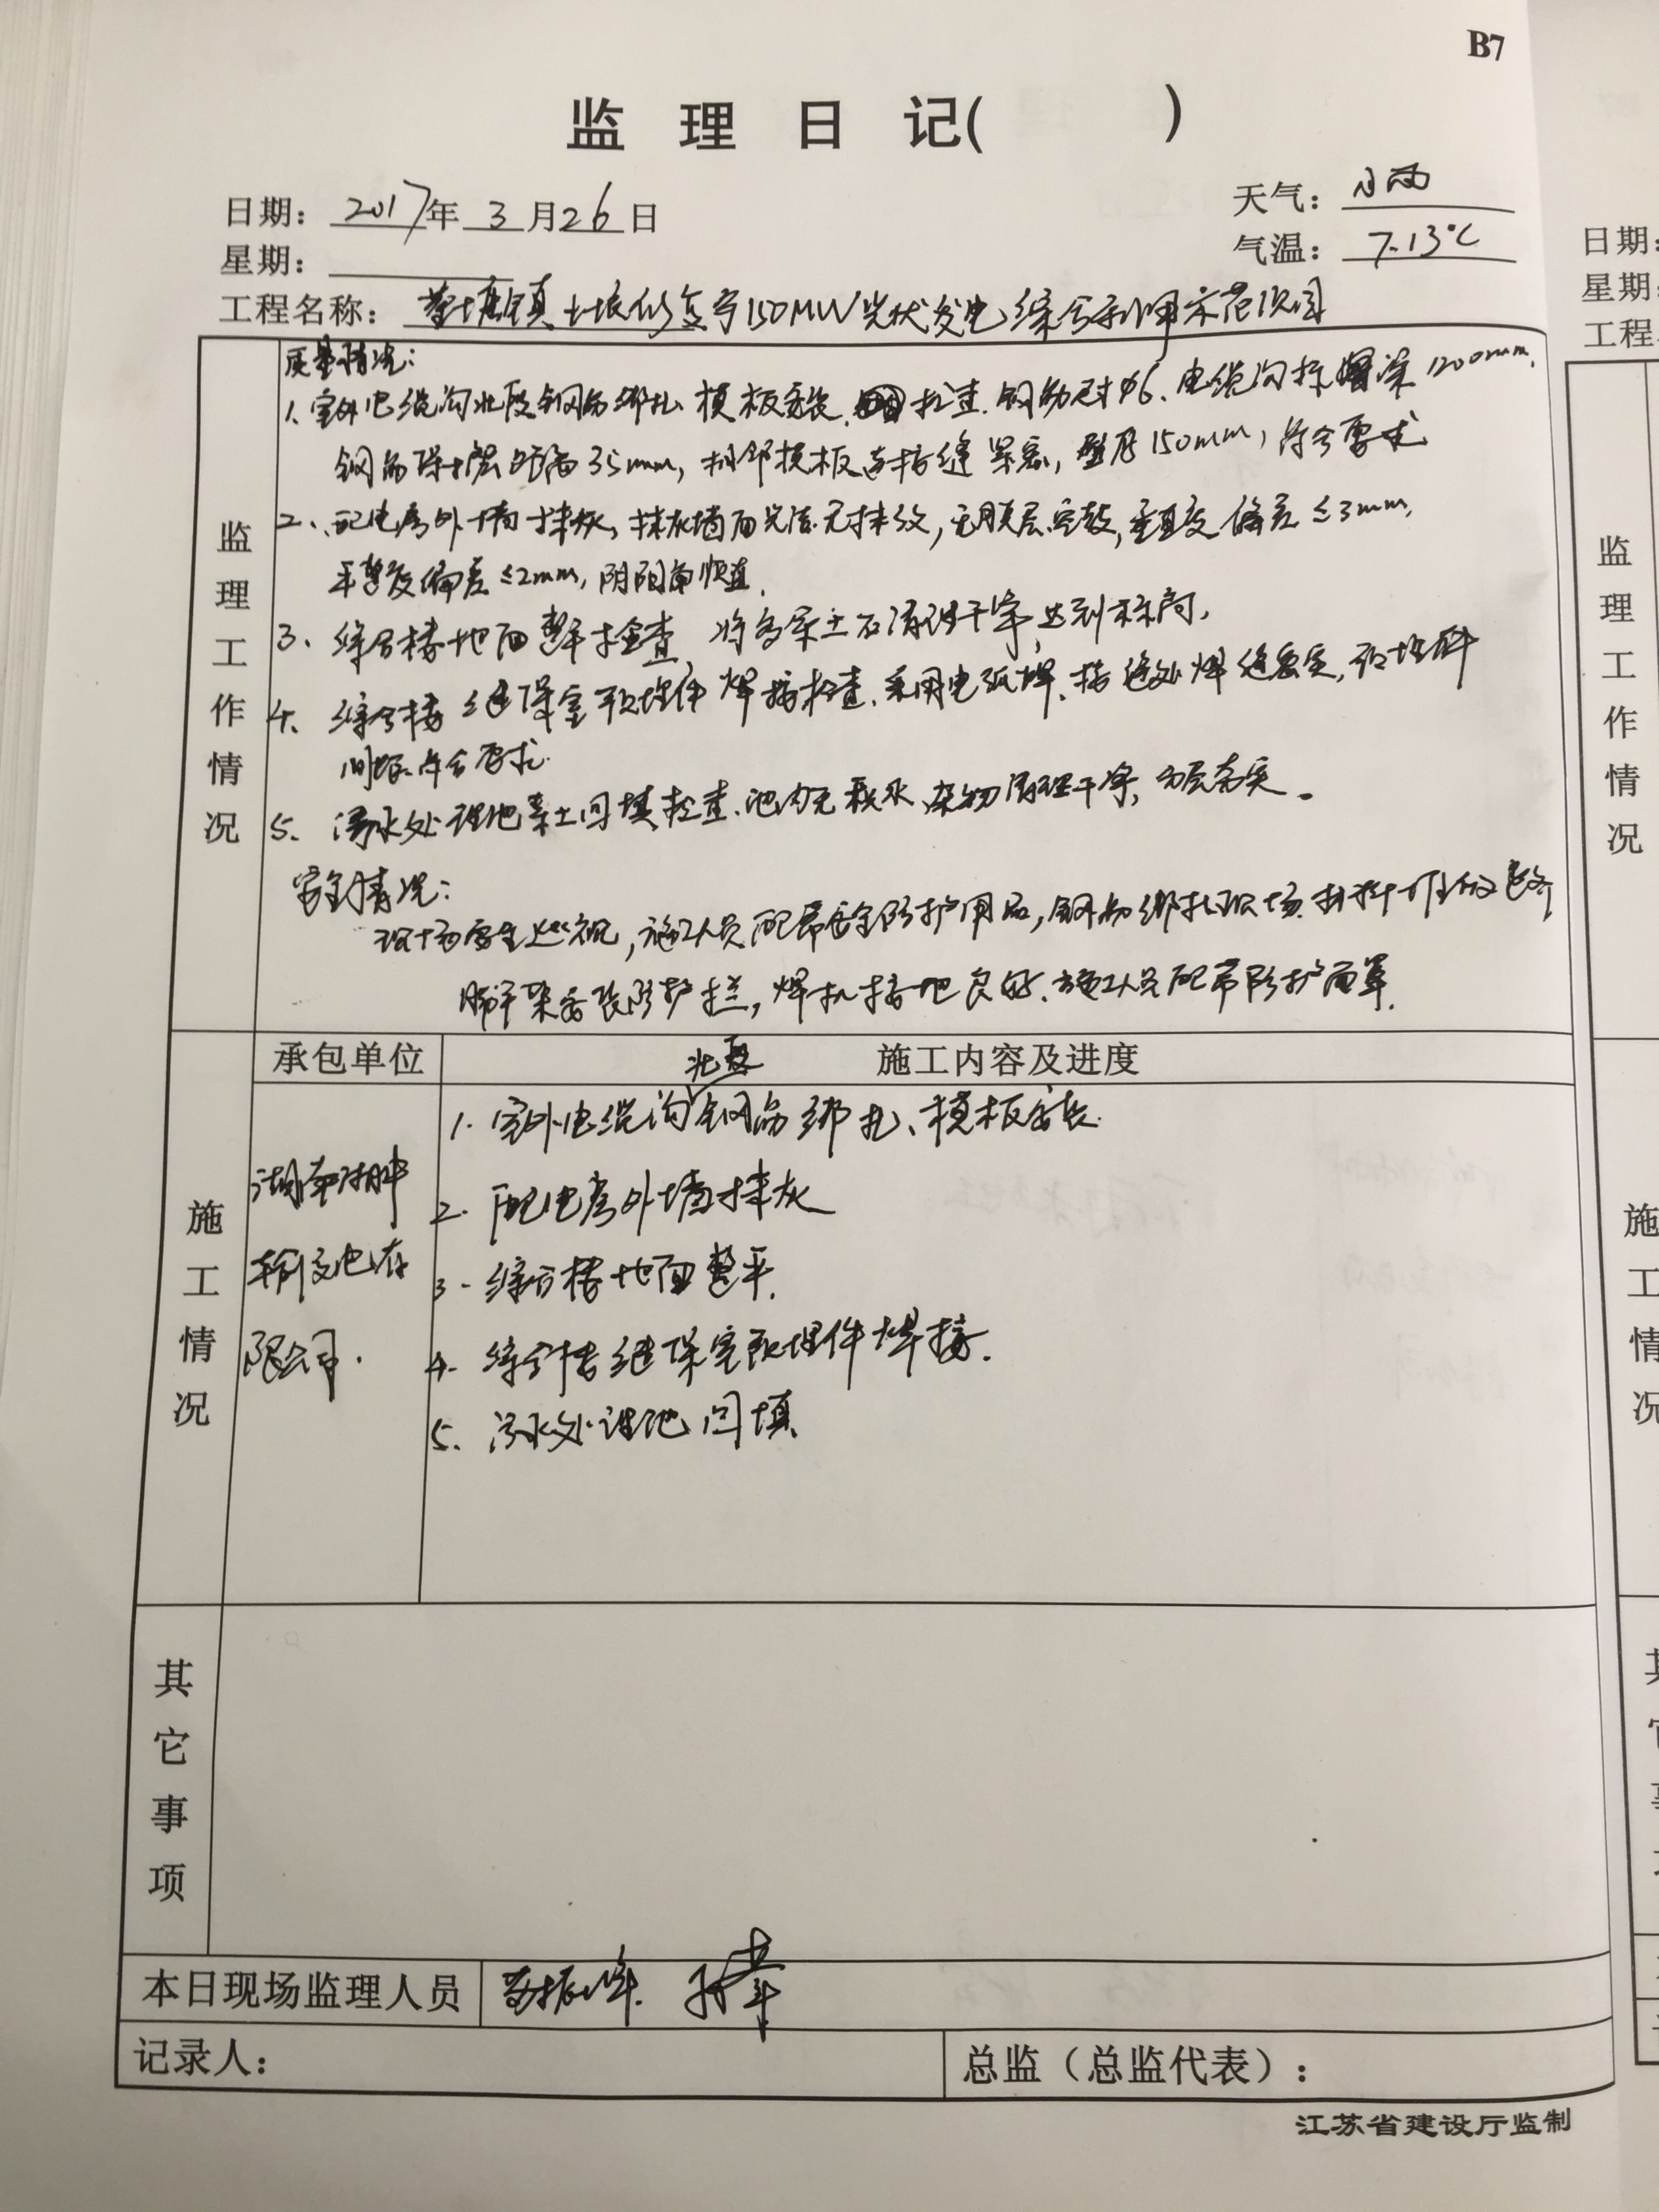 B7
监 理 日 记( )
日期: 2017年 3 月26日
天气: 小雨
星期:
气温: 7-13℃
工程名称: 塘镇土壤修复与150MW光伏发电综合利用示范项目
监理工作情况
质量情况:
1、室外电缆沟北段钢筋绑扎、模板安装、检查,钢筋尺寸φ6、电缆沟标深1200mm,
钢筋保护层距离35mm,相邻模板间接缝紧密,壁厚150mm,符合要求
2、配电房外墙抹灰,抹灰墙面光洁无抹纹,无脱层空鼓,垂直度偏差≤3mm,
平整度偏差≤2mm,阴阳角顺直.
3、综合楼地面整平检查,将多余土石清理干净,达到标高,
4、综合楼继保室预埋件焊接检查,采用电弧焊,接缝处焊缝密实,预埋件
间距符合要求.
5、污水处理池素土回填检查,池内无积水,杂物清理干净,分层夯实。
安全情况:
现场安全巡视,施工人员配带安全防护用品,钢筋绑扎现场材料堆放整齐
脚手架安装防护栏,焊机接地良好,施工人员配带防护面罩.
施工情况
承包单位
施工内容及进度
北段
1. 室外电缆沟钢筋绑扎、模板安装.
湖南
2. 配电房外墙抹灰
输变电有
3. 综合楼地面整平.
限公司.
4. 综合楼继保室预埋件焊接.
5. 污水处理池回填
其它事项
本日现场监理人员
记录人:
总监(总监代表):
江苏省建设厅监制
日期:
星期:
工程
监理工作情况
施工情况